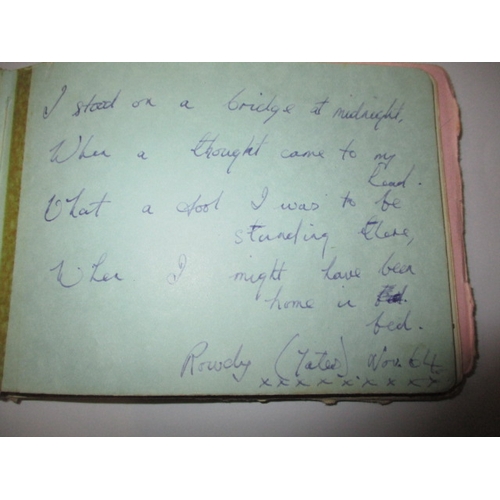 I stood on a bridge at midnight,
When a thought came to my
head.
What a fool I was to be
standing there,
When I might have been
home in
bed.
Rowdy (Yates) Nov. 64
x x x x x x x x x x